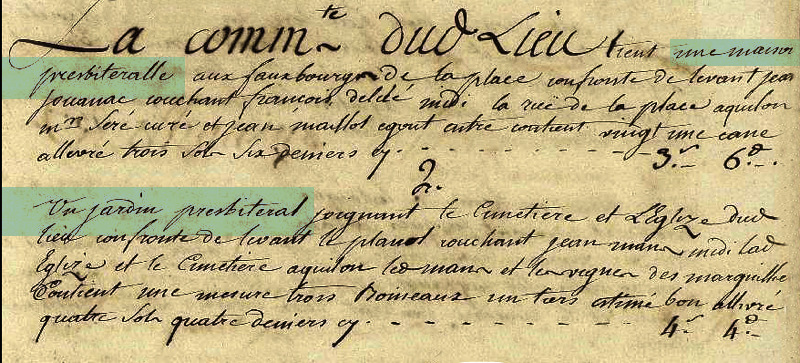 La comm.te dud Lieu tient une maison
presbiteralle aux fauxbourgs de la place confronte de levant jean
Jouanac couchant francois delclé midi la rue de la place aquilon
mr. Seré curé et jean maillol egout entre contient vingt une cane
allivré trois sols six deniers cy. - - - - - - - - 3.s 6.d
2.
Un jardin presbiteral joignant le Cimetiere et L'Eglize dud
lieu confronte de levant le planol couchant jean man midi lad
Eglize et le Cimetiere aquilon led man et les vignes des marguille
Contient une mesure trois Boiseaux un tiers estimé bon allivré
quatre sols quatre deniers cy. - - - - - - - - 4.s 4.d